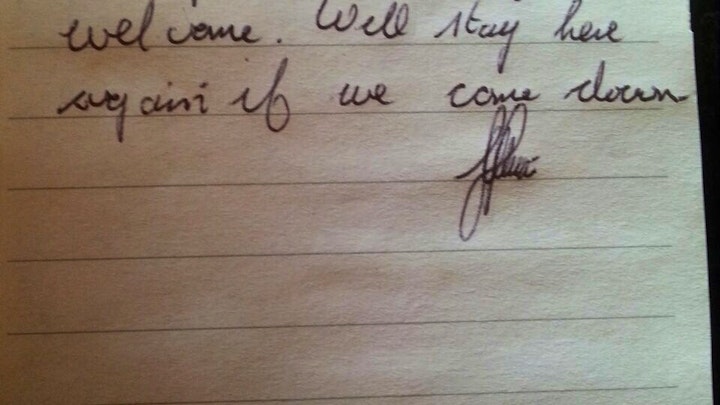 welcome. Well stay here
again if we come down